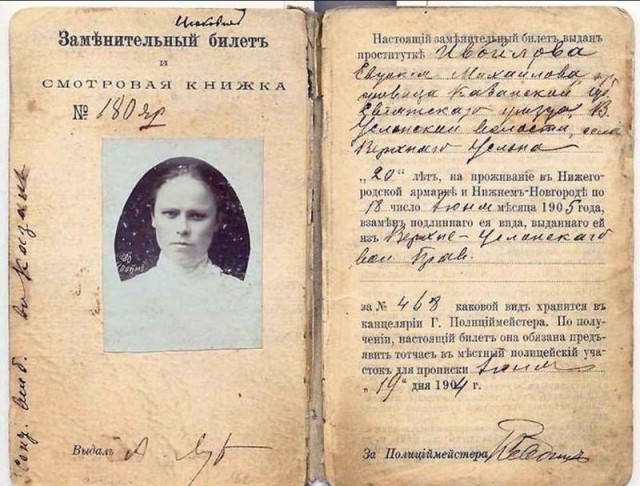 Замѣнительный билетъ
и
СМОТРОВАЯ КНИЖКА
№ 180 яр
Выдалъ
Настоящій замѣнительный билетъ выданъ
проституткѣ Ивойлова
Евдокія Михайлова
Казанской
Свіяжскаго уѣзда, В.
Услонской волости, села
Верхняго Услона
„20“ лѣтъ, на проживаніе въ Нижего-
родской ярмаркѣ и Нижнемъ-Новгородѣ по
18 число Іюня мѣсяца 1905 года,
взамѣнъ подлиннаго ея вида, выданнаго ей
изъ Верхне-Услонскаго
вол Прав.
за № 468 каковой видъ хранится въ
канцеляріи Г. Полиціймейстера. По полу-
ченіи, настоящій билетъ она обязана предъ-
явить тотчасъ въ мѣстный полицейскій уча-
стокъ для прописки Іюня
„19“ дня 1904 г.
За Полиціймейстера